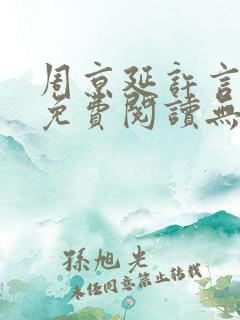 周京延許言
免費閱讀無
孫旭光
未经同意禁止转载